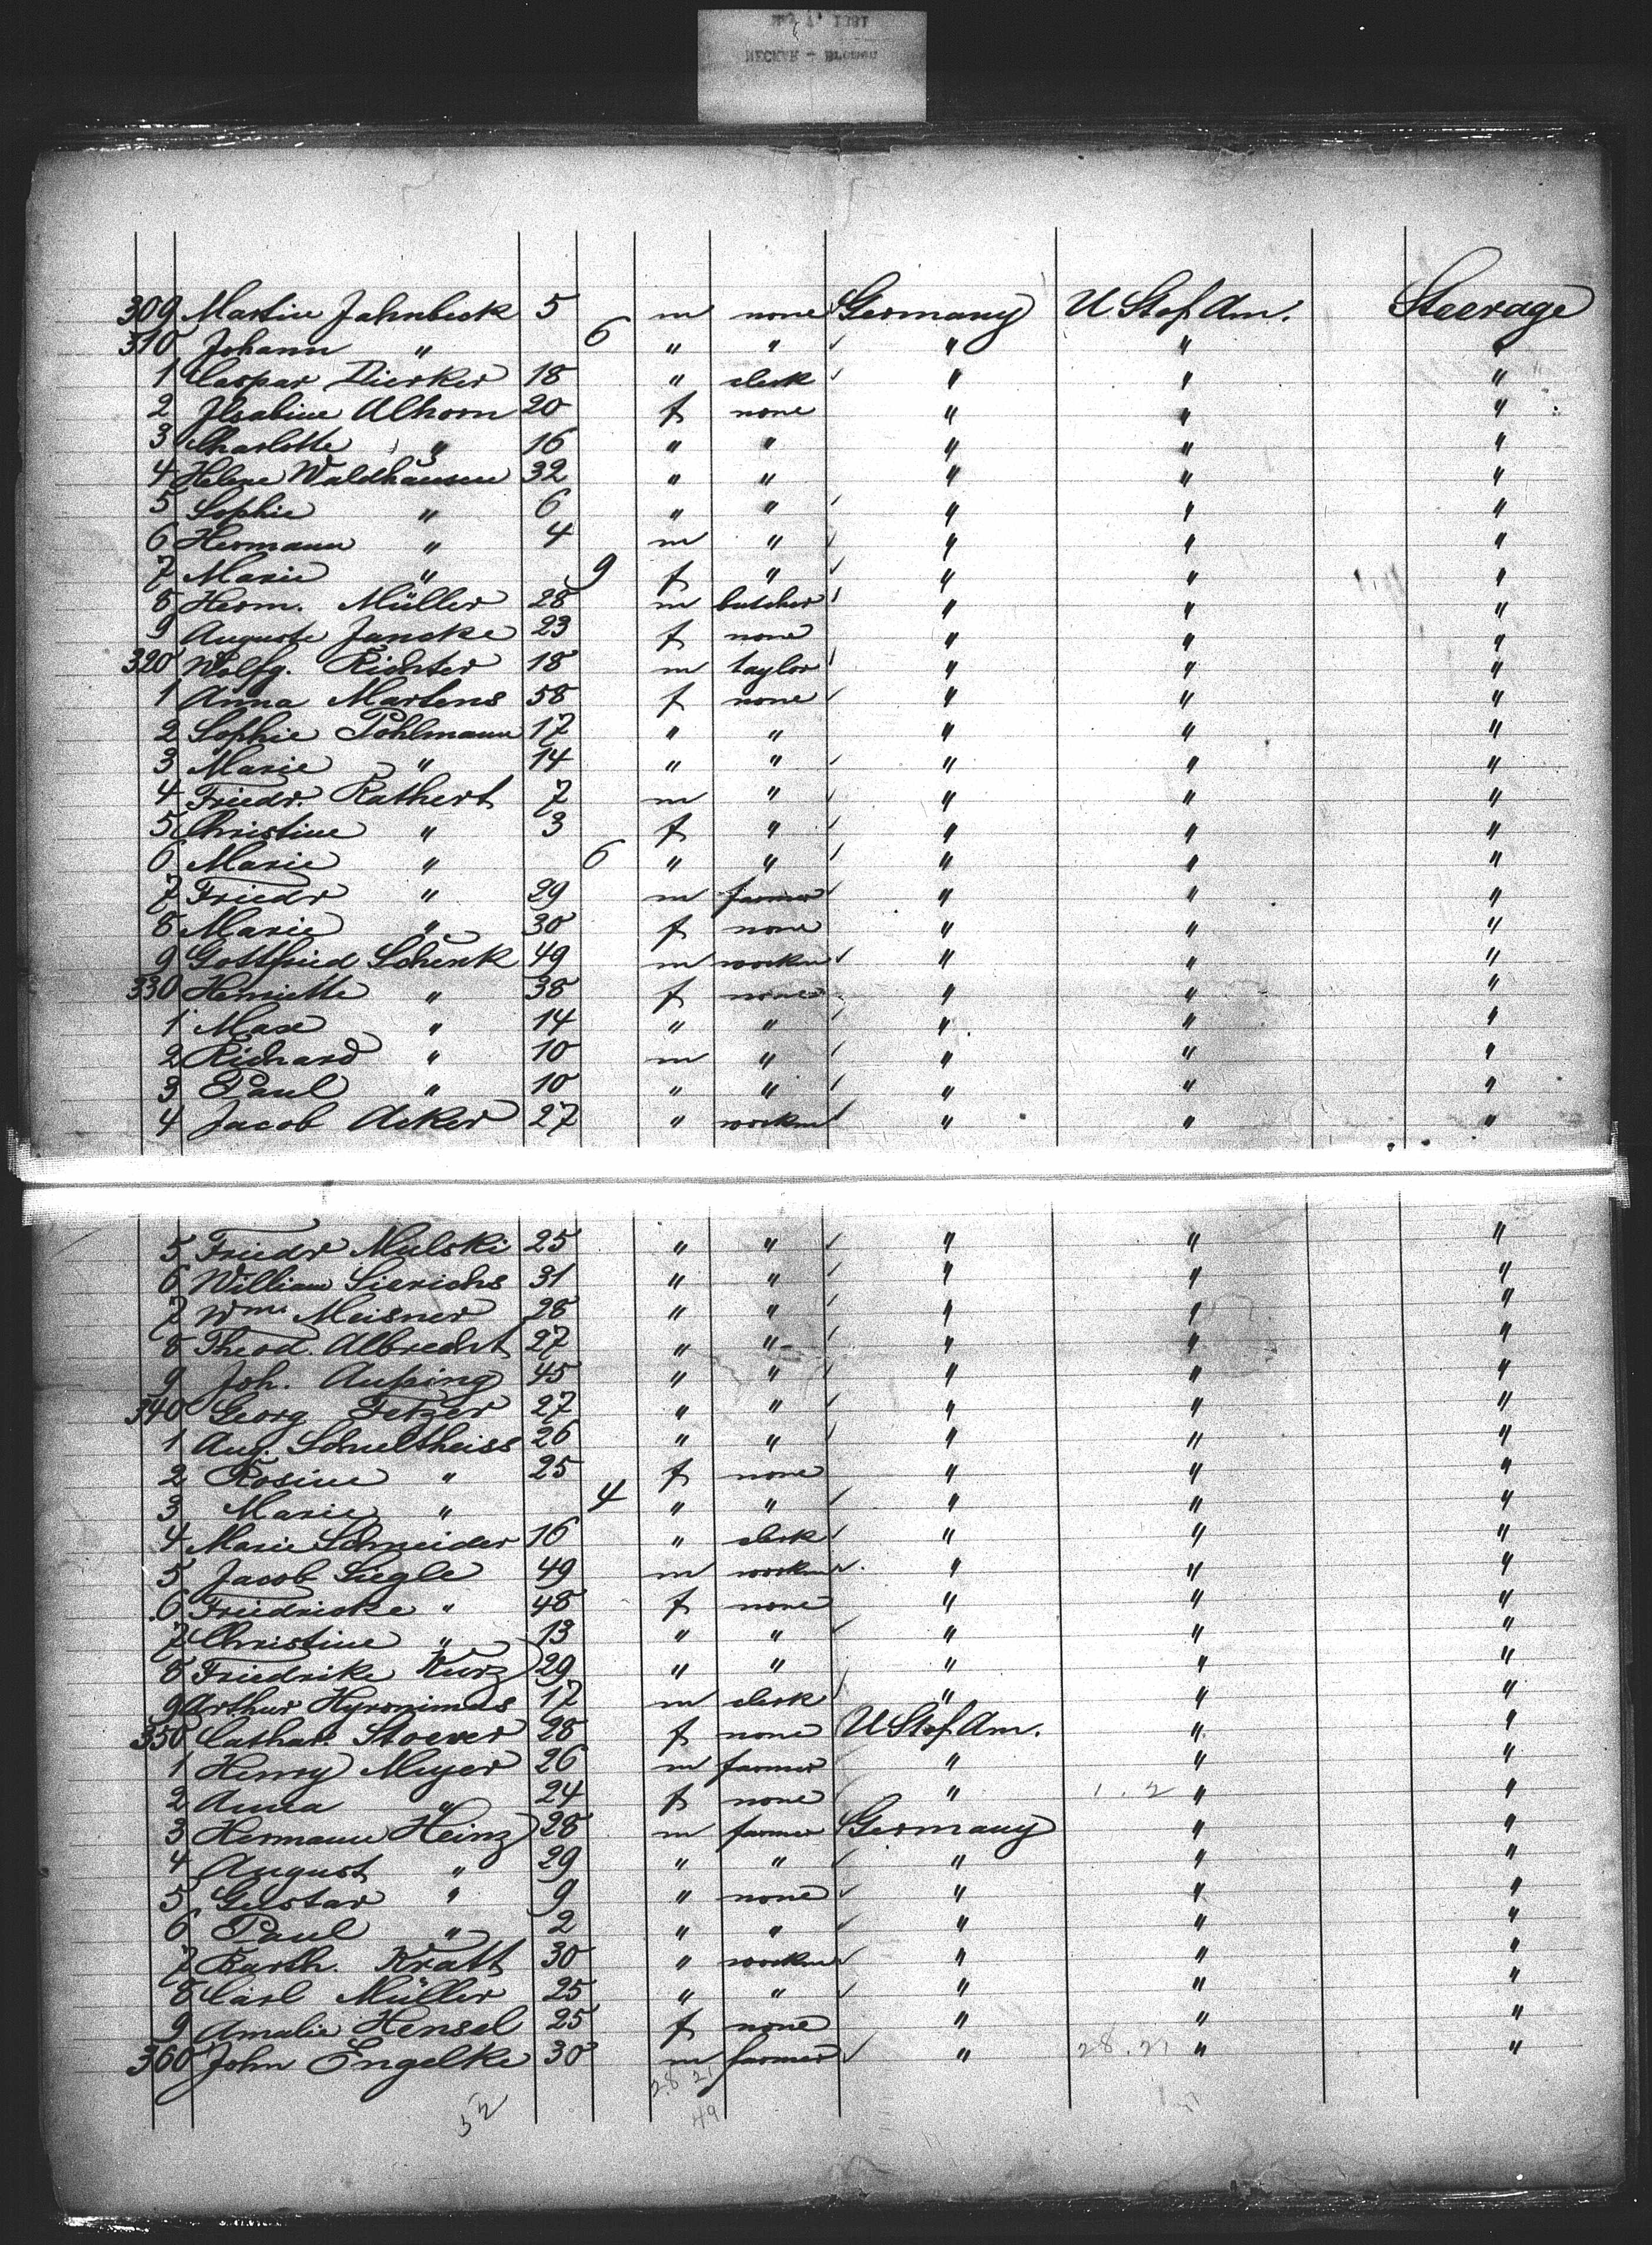 May 4, 1881
NECKAR - Bremen
309 Martin Jahnbeck 5 m none Germany U.St.of.Am. Steerage
310 Johann " 6 " " " " "
1 Caspar Dierker 18 " clerk " " "
2 Ilsabine Alhorn 20 f none " " "
3 Charlotte " 16 " " " " "
4 Helene Waldhausen 32 " " " " "
5 Sophie " 6 " " " " "
6 Hermann " 4 m " " " "
7 Marie " 9 f " " " "
8 Herm. Müller 28 m butcher " " "
9 Auguste Jancke 23 f none " " "
320 Wolfg. Richter 18 m taylor " " "
1 Anna Martens 58 f none " " "
2 Sophie Pohlmann 17 " " " " "
3 Marie " 14 " " " " "
4 Friedr. Rathert 7 m " " " "
5 Christine " 3 f " " " "
6 Marie " 6 " " " " "
7 Friedr " 29 m farmer " " "
8 Marie " 30 f none " " "
9 Gottfried Schenk 49 m workm " " "
330 Henriette " 38 f none " " "
1 Max " 14 " " " " "
2 Richard " 10 m " " " "
3 Paul " 10 " " " " "
4 Jacob Acker 27 " workm " " "
5 Friedr Mulski 25 " " " " "
6 William Sierichs 31 " " " " "
7 Wm. Meisner 28 " " " " "
8 Theod. Albrecht 27 " " " " "
9 Joh. Auping 45 " " " " "
340 Georg Fetzer 27 " " " " "
1 Aug. Schultheiss 26 " " " " "
2 Rosine " 25 f none " " "
3 Marie " 4 " " " " "
4 Marie Schneider 16 " clerk " " "
5 Jacob Siegle 49 m workm " " "
6 Friedricke " 48 f none " " "
7 Christine " 13 " " " " "
8 Friedrike Kurz 29 " " " " "
9 Arthur Hyronimus 17 m clerk " " "
350 Cathar. Stoever 28 f none U.St.of.Am. " "
1 Henry Meyer 26 m farmer " " "
2 Anna " 24 f none " 1.2 " "
3 Hermann Heinz 28 m farmer Germany " "
4 August " 29 " " " " "
5 Gustav " 9 " none " " "
6 Paul " 2 " " " " "
7 Barth. Kratt 30 " workm " " "
8 Carl Müller 25 " " " " "
9 Amalie Hensel 25 f none " " "
360 John Engelke 30 m farmer " 28.21 " "
28 21
52 49